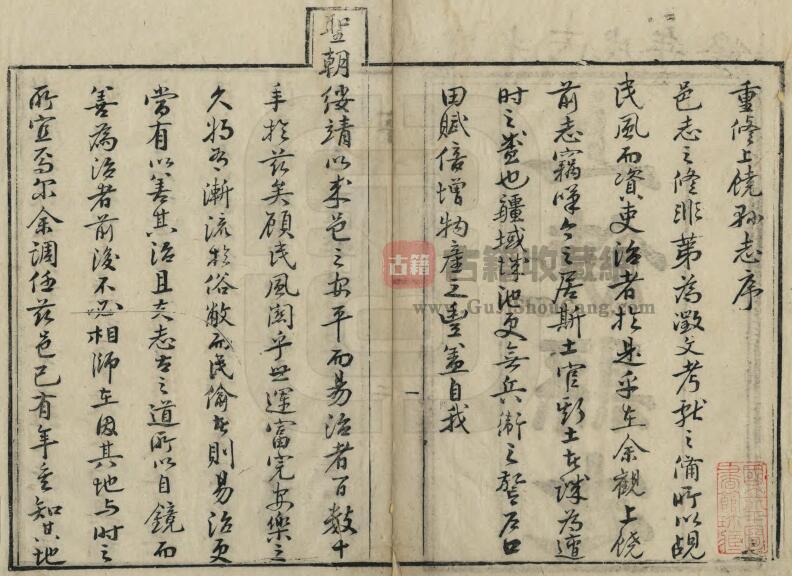 重修上饒縣志序
邑志之修非第為徵文考獻之備所以覘
民風而資吏治者於是乎在余觀上饒
前志竊嘆今之居斯土官斯土者誠為遭
時之盛也疆域城池更無兵衛之警戶口
田賦倍增物產之豐蓋自我
聖朝綏靖以來邑之安平而易治者百數十
年於茲矣顧民風關乎世運富完安樂之
久將有漸流於俗敝而民偷者則易治更
當有以善其治且夫志古之道所以自鏡而
善為治者前後不必相師在因其地與時之
所宜焉爾余調任茲邑已有年重知其地
一
古籍
古籍收藏網
www.GuJiShouCang.com